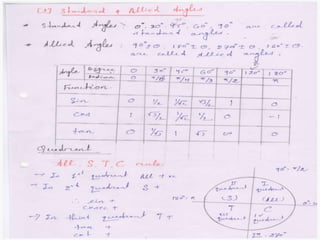 (3) Standard & Allied Angles
* Standard Angles : 0°, 30°, 45°, 60°, 90° are called
standard angles.
* Allied Angles : 90°±θ, 180°±θ, 270°±θ, 360°±θ
are called Allied angles.
Angle Degree 0 30° 45° 60° 90° 120° 180°
Radian 0 π/6 π/4 π/3 π/2 π
Function
Sin 0 1/2 1/√2 √3/2 1 0
Cos 1 √3/2 1/√2 1/2 0 -1
tan 0 1/√3 1 √3 ∞ 0
Quadrant
All, S, T, C rule
→ In 1st quadrant All + n
→ In 2nd quadrant S +
∴ sin +
cosec +
→ In third quadrant T +
tan +
cot +
90°
II I
quadrant quadrant
180° (S) (All)
T
quadrant quadrant
270°